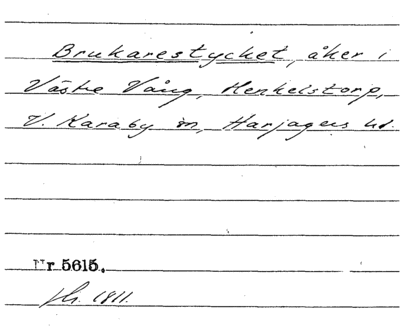 Brukarestycket, åker i
Västre Vång, Henkelstorp,
V. Karaby sn, Harjagers hd.
Nr 5615.
1811.